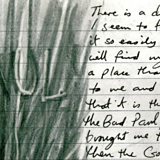 There is a d
I seem to f
it so easily
will find m
a place tha
to me and
that it is th
the Bad Paul
brought me
then the